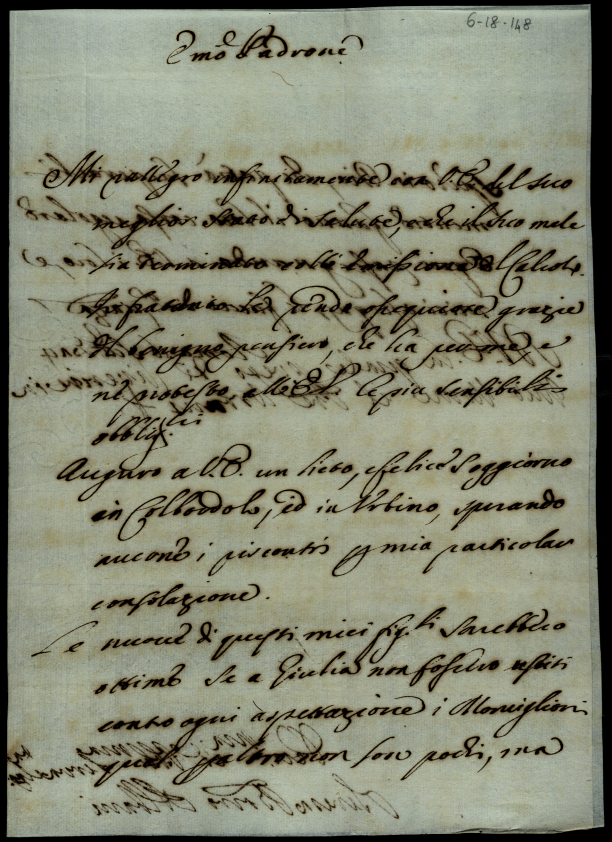 6-18-148
Emo Padrone
Mi rallegro infinitamente con V.E. del suo
meglior stato di salute, e che il suo male
sia terminato coll'emissione del Calcolo.
Infinitamente le rendo grazie
del benigno pensiero, che ha per me e
ne protesto alle E.V. le più sensibili
obblig.ni
Auguro a V.E. un lieto, e felice Soggiorno
in Colbordolo, ed in Urbino, sperando
ancora i riscontri p mia particolar
consolazione.
Le nuove di questi miei figli sarebbero
ottime se a Giulia non fossero usciti
contro ogni aspettazione i Morviglioni
quali peraltro non son pochi, ma